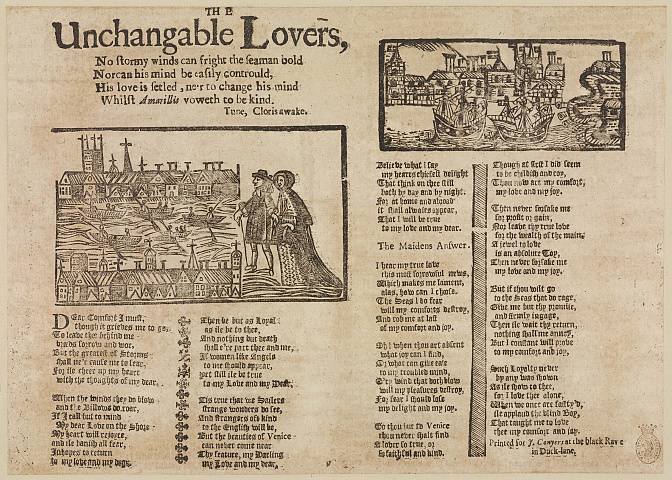 THE
Unchangable Lovers,
No stormy winds can fright the seaman bold
Nor can his mind be easily contrould,
His love is setled, ne'r to change his mind
Whilst Amarillis voweth to be kind.
Tune, Cloris awake.
DEar Comfort I must,
though it grieves me to go,
To leave thee behind me
breeds sorrow and woe,
But the greatest of Storms
shall ne'r cause me to fear,
For ile cheer up my heart
with the thoughts of my dear.
When the winds they do blow
and the Billows do roar,
If I call but to mind
My dear Love on the shore
My heart will rejoyce,
and ile banish all fear,
In hopes to return
to my love and my dear.
Then be but as Loyal
as ile be to thee,
And nothing but death
shall e'r part thee and me,
If women like Angels
to me should appear,
yet still ile be true
to my Love and my Dear.
Tis true that we Saylers
strange wonders do see,
And strangers are kind
to the English will be,
But the beauties of Venice
can never come near
Thy feature, my Darling
my Love and my dear.
Believe what I say
my hearts chiefest delight
That think on thee still
both by day and by night.
For at home and abroad
it shall always appear,
That I will be true
to my Love and my dear.
The Maidens Answer.
I hear my true love
this most sorrowful news,
Which makes me lament,
alas, how can I chose.
The Seas I do fear
will my comforts destroy,
And rob me at last
of my comfort and joy.
Oh! when thou art absent
what joy can I find,
Or what can give ease
to my troubled mind,
Each wind that doth blow
will my pleasures destroy,
For fear I should lose
my delight and my joy.
Go thou but to Venice
thou never shalt find
A lover so true, or
so faithful and kind.
Though at first I did seem
to be childish and coy,
Thou now art my comfort,
my love and my joy.
Then never forsake me
for profit or gain,
Nor leave thy true love
for the wealth of the main,
A jewel to love
is an absolute Toy,
Then never forsake me
my love and my joy.
But if thou wilt go
to the Seas that do rage,
Give me but thy promise,
and firmly ingage,
Then ile wait thy return,
nothing shall me annoy,
But I constant will prove
to my comfort and joy.
Such Loyalty never
by any was shown
As ile show to thee,
for I love thee alone,
When we once are
ile applaud the blind Boy,
That taught me to love
thee my comfort and joy.
Printed for J. Conyers at the black Raven
in Duck-lane.